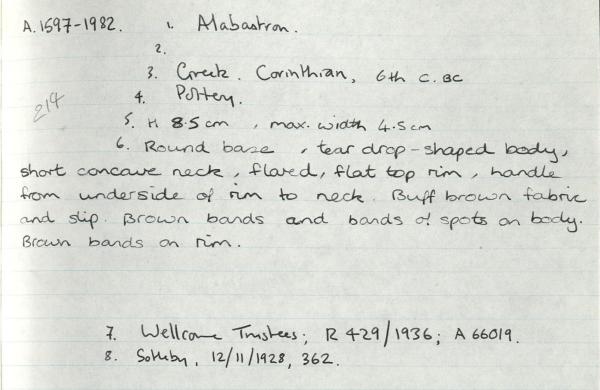 A.1597-1982. 1. Alabastron.
2.
3. Greek. Corinthian, 6th C. BC
4. Pottery.
214
5. H 8.5cm , max. width 4.5cm
6. Round base , tear drop-shaped body,
short concave neck, flared, flat top rim, handle
from underside of rim to neck. Buff brown fabric
and slip. Brown bands and bands of spots on body.
Brown bands on rim.
7. Wellcome Trustees; R 429/1936; A 66019.
8. Sotheby, 12/11/1928, 362.